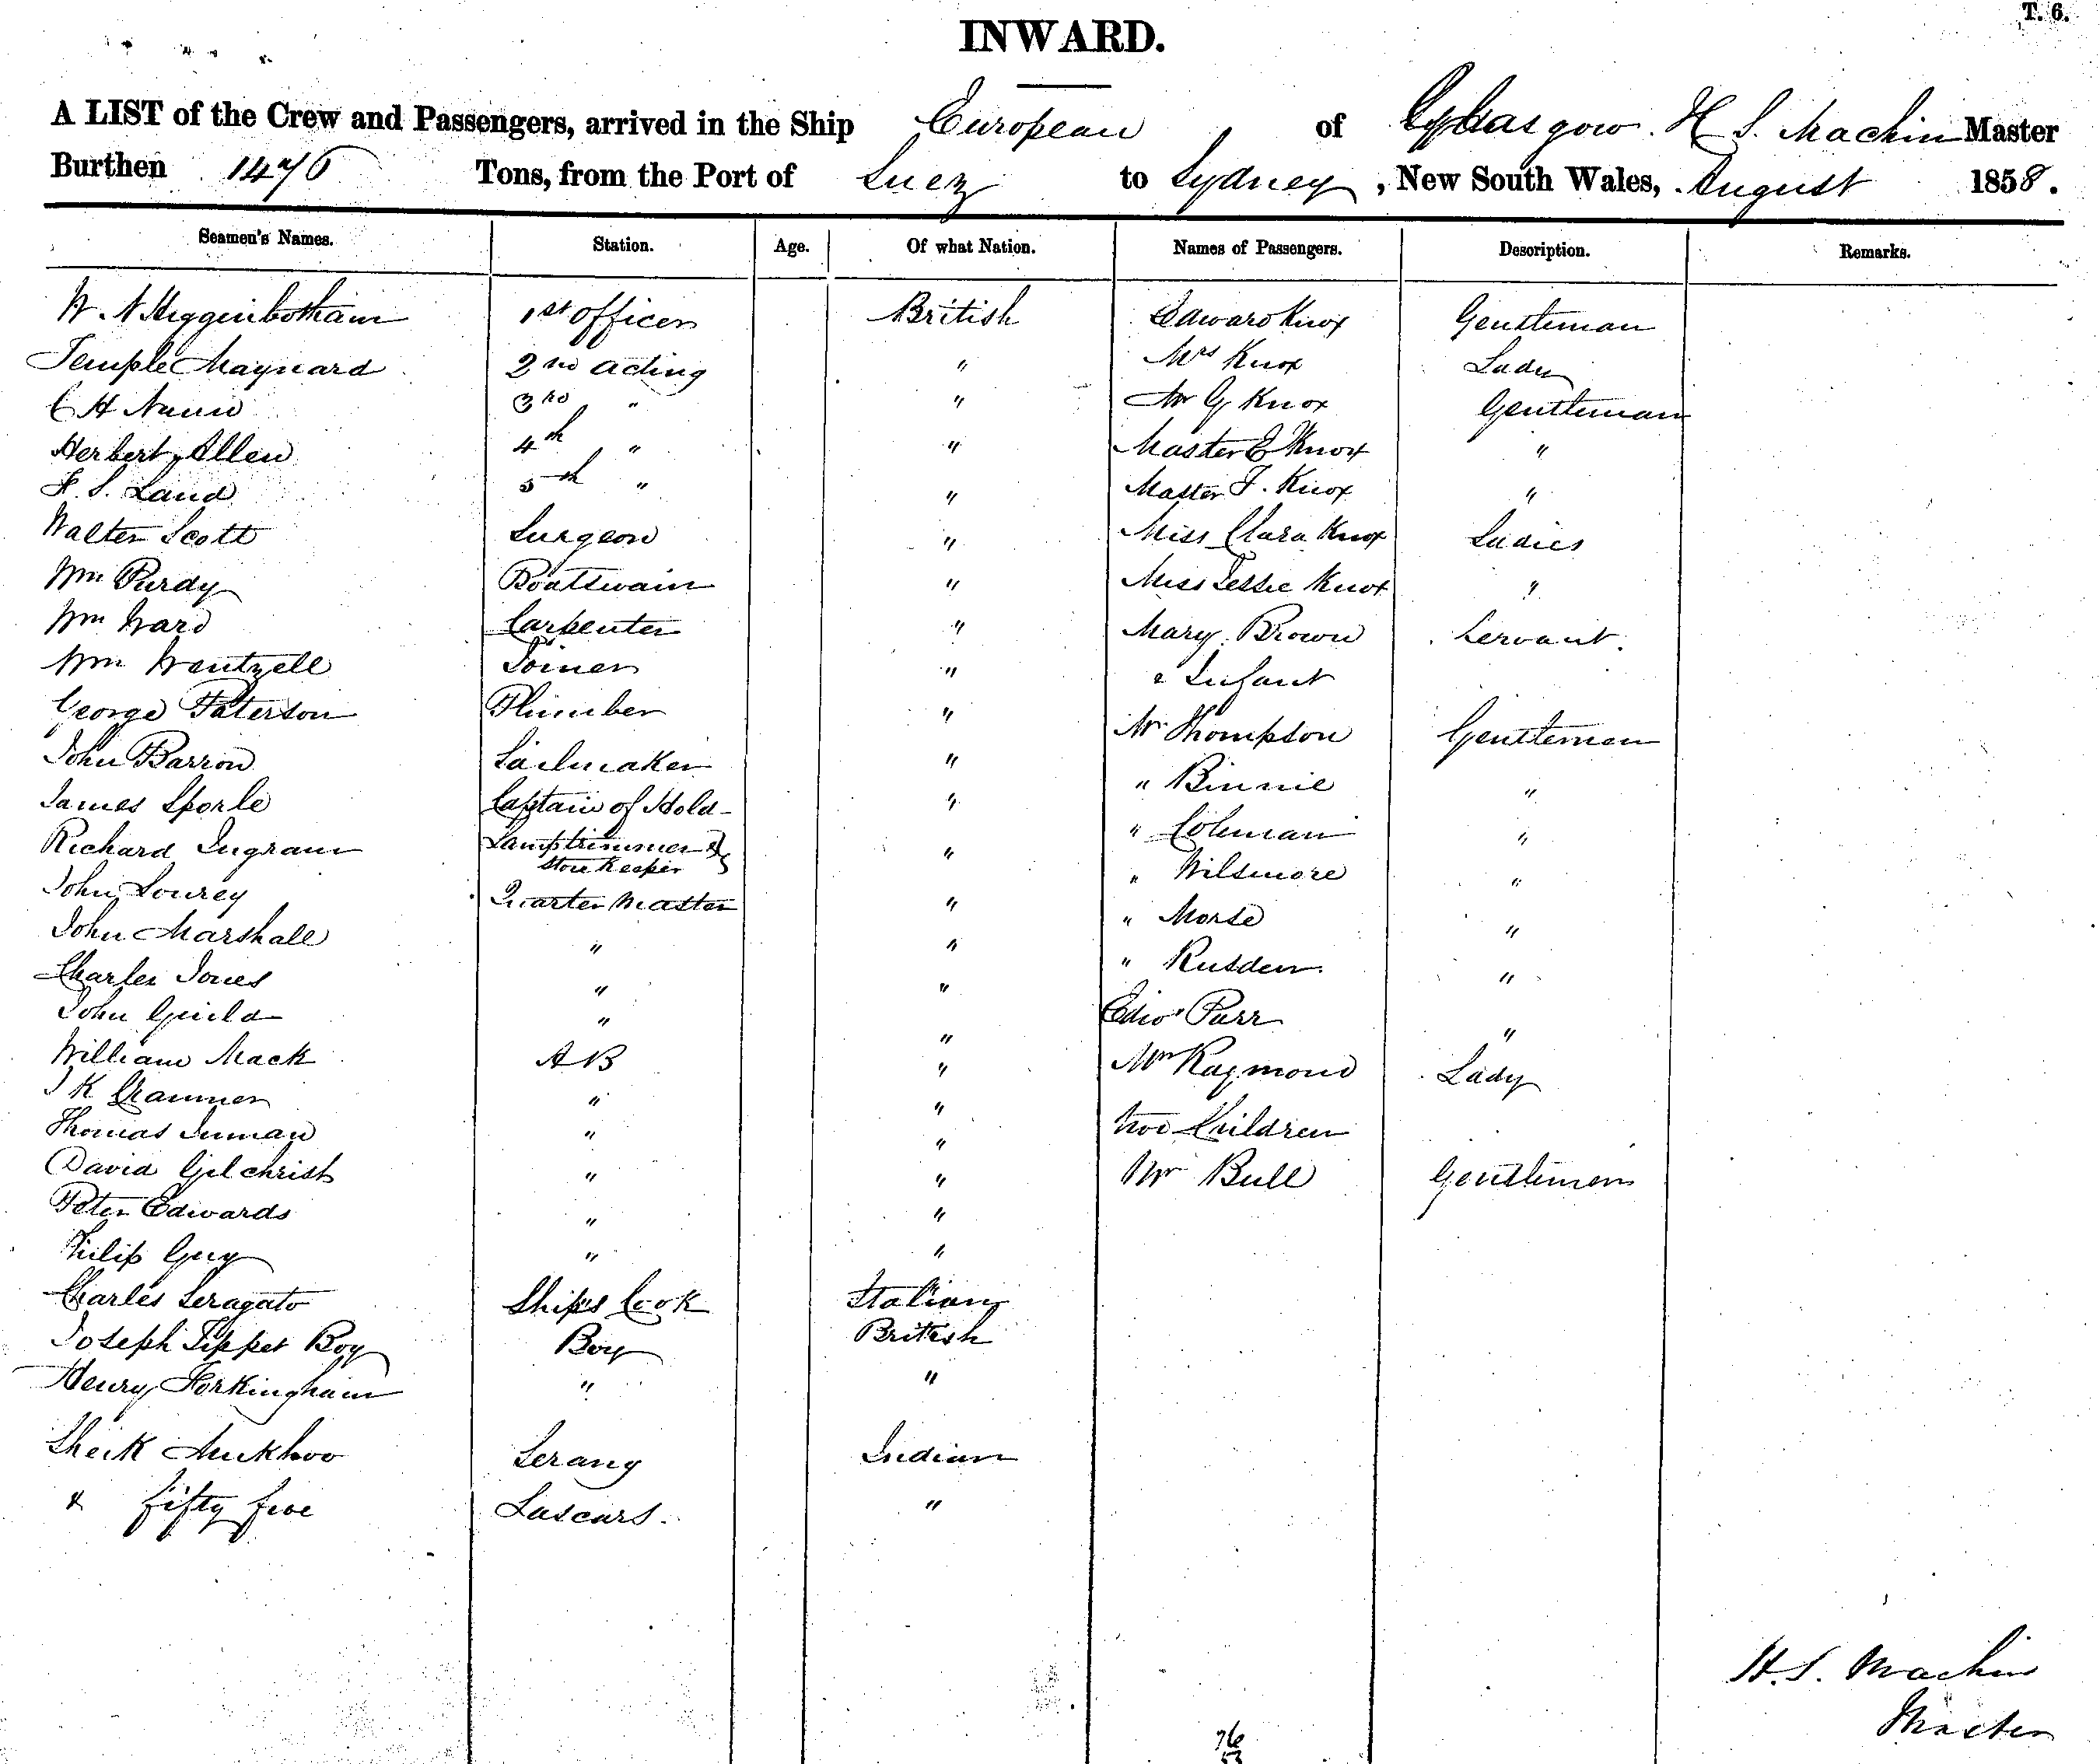 T. 6.
INWARD.
A LIST of the Crew and Passengers, arrived in the Ship European of Glasgow. H S. Machin Master
Burthen 1476 Tons, from the Port of Suez to Sydney, New South Wales, August 1858.
Seamen's Names. Station. Age. Of what Nation. Names of Passengers. Description. Remarks.
W. A Higginbotham 1st officer British Edward Knox Gentleman
Temple Maynard 2nd acting " Mrs Knox Lady
C H Nunn 3rd " " Mr G Knox Gentleman
Herbert Allen 4th " " Master E Knox "
F. S. Land 5th " " Master T. Knox "
Walter Scott Surgeon " Miss Clara Knox Ladies
Wm Purdy Boatswain " Miss Jessie Knox "
Wm Ward Carpenter " Mary Brown Servant.
Wm Wentzell Joiner " " Infant
George Paterson Plumber " Mr Thompson Gentlemen
John Barron Sailmaker " " Binnie "
James Sporle Captain of Hold " " Coleman "
Richard Ingram Lamptrimmer & Store Keeper " " Wilsmore "
John Lourey Quarter Master " " Morse "
John Marshall " " " Rusden. "
Charles Jones " " Edwd Parr "
John Guild " "
William Mack AB " Mrs Raymond Lady
J K Cranmer " " two Children
Thomas Inman " "
David Gilchrist " " Mr Bull Gentleman
Peter Edwards " "
Philip Guy " "
Charles Seragato Ships Cook Italian
Joseph Tippet Boy Boy British
Henry Forkingham " "
Sheik Serang Indian
& fifty five Lascars. "
H. S. Machin
Master
76
53